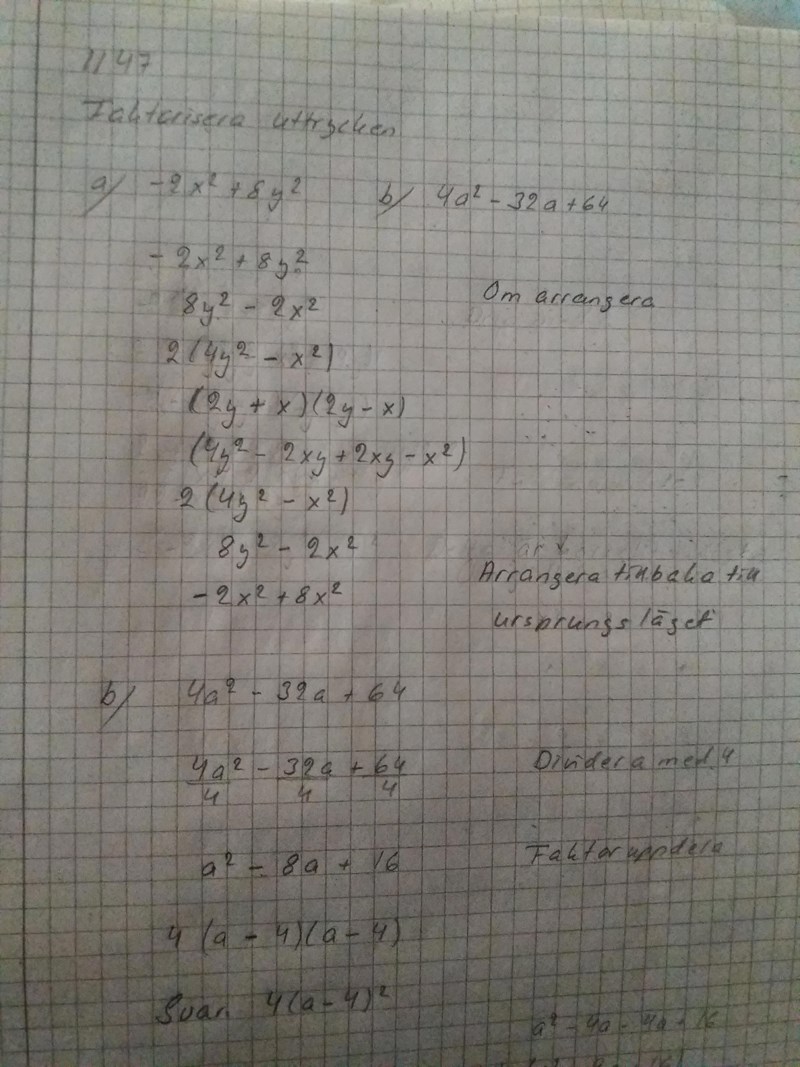 1147
Faktorisera uttrycken
a) -2x² + 8y² b) 4a² - 32a + 64
- 2x² + 8y²
8y² - 2x² Om arrangera
2(4y² - x²)
(2y + x)(2y - x)
(4y² - 2xy + 2xy - x²)
2(4y² - x²)
8y² - 2x²
Arrangera tillbaka till
-2x² + 8x²
ursprungsläget
b) 4a² - 32a + 64
4a²/4 - 32a/4 + 64/4 Dividera med 4
a² - 8a + 16 Faktoruppdela
4 (a - 4)(a - 4)
Svar 4(a - 4)²
a² - 4a - 4a + 16